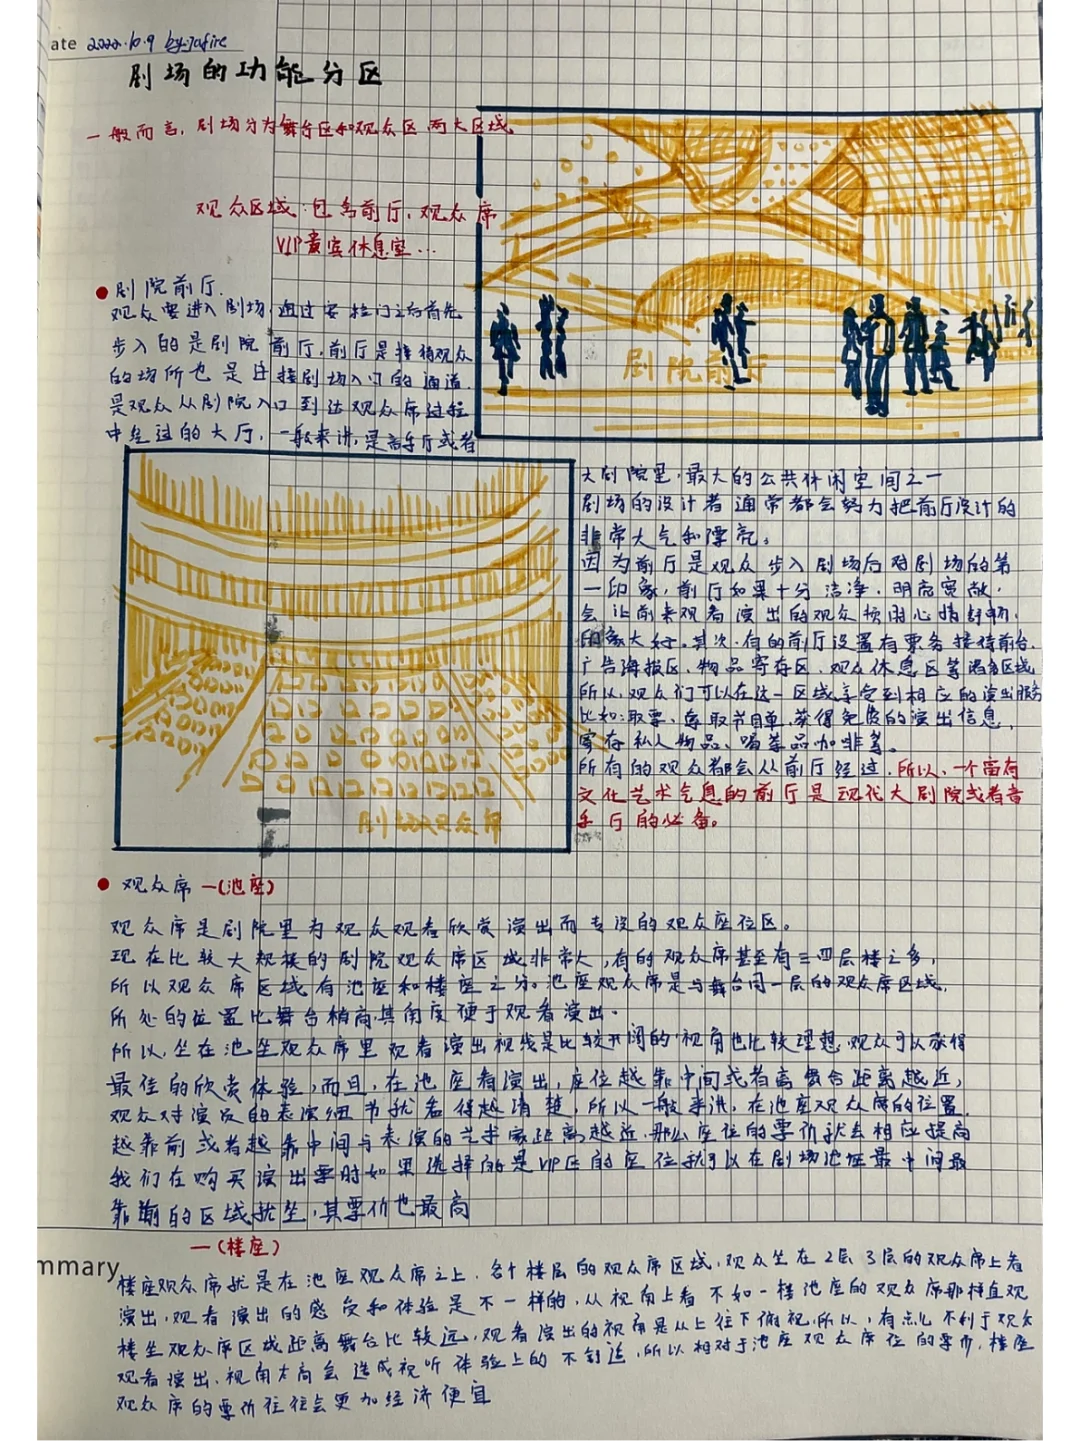 ate 2022.10.9 by:Jafire
剧场的功能分区
一般而言，剧场分为舞台区和观众区两大区域
观众区域：包含前厅、观众席
VIP贵宾休息室...
剧院前厅.
观众要进入剧场，通过安检门之后首先
步入的是剧院前厅，前厅是接待观众
的场所也是连接剧场入口的通道.
是观众从剧院入口到达观众席过程
中经过的大厅，一般来讲，是音乐厅或者
剧院前厅
大剧院里，最大的公共休闲空间之一
剧场的设计者通常都会努力把前厅设计的
非常大气和漂亮。
因为前厅是观众步入剧场后对剧场的第
一印象，前厅如果十分洁净，明亮宽敞，
会让前来观看演出的观众顿时心情舒畅，
印象大好。其次，有的前厅设置有票务接待前台、
广告海报区、物品寄存区、观众休息区等区域
所以，观众们可以在这一区域享受到相应的演出服务
比如：取票、拿取节目单、获得免费的演出信息，
寄存私人物品、喝茶品咖啡等。
所有的观众都会从前厅经过，所以，一个富有
文化艺术气息的前厅是现代大剧院或者音
乐厅的必备。
剧场观众席
观众席 一（池座）
观众席是剧院里为观众观看欣赏演出而专设的观众座位区。
现在比较大规模的剧院观众席区域非常大，有的观众席甚至有三四层楼之多，
所以观众席区域有池座和楼座之分。池座观众席是与舞台同一层的观众席区域，
所处的位置比舞台稍高，其角度便于观看演出.
所以，坐在池座观众席里观看演出视线是比较开阔的，视角也比较理想，观众可以获得
最佳的欣赏体验，而且，在池座看演出，座位越靠中间或者离舞台距离越近，
观众对演员的表演细节就看得越清楚，所以一般来讲，在池座观众席的位置，
越靠前或者越靠中间与表演的艺术家距离越近，那么座位的票价就会相应提高
我们在购买演出票时如果选择的是VIP区的座位就可以在剧场池座最中间最
靠前的区域就坐，其票价也最高
一（楼座）
mmary
楼座观众席就是在池座观众席之上，各个楼层的观众席区域，观众坐在2层3层的观众席上看
演出，观看演出的感受和体验是不一样的，从视角上看不如一楼池座的观众席那样直观
楼座观众席区域距离舞台比较远，观看演出的视角是从上往下俯视，所以，有点儿不利于观众
观看演出，视角太高会造成视听体验上的不舒适，所以相对于池座观众席位的票价，楼座
观众席的票价往往会更加经济便宜